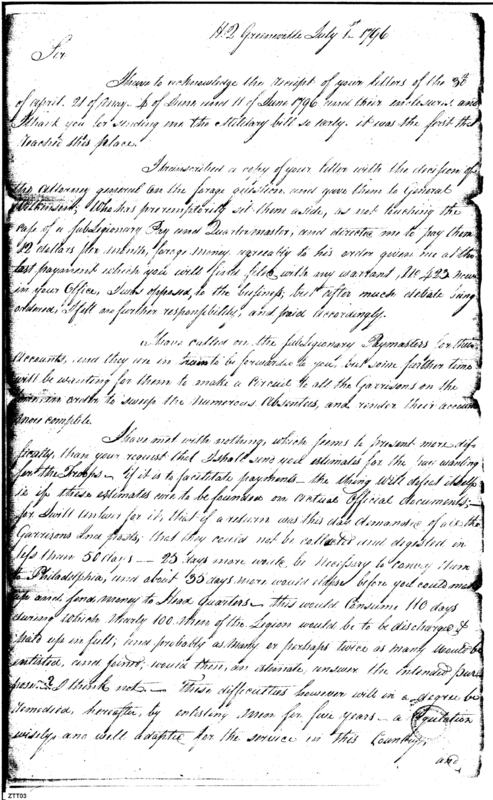 H.Q. Greenville July 1st 1796
Sir
I have to acknowledge the receipt of your letters of the 3d
of april. 21 of may. 4 of June and 11 of June 1796 and their inclosures, and
thank you for sending me the Military bill so early. it was the first that
reached this place.
I transcribed a copy of your letter with the decision of
the attorney general on the forage question and gave them to General
Wilkinson; Who has peremptorily set them aside, as not touching the
case of a Sub Legionary Pay and Quartermaster, and directed me to pay them
12 dollars per month, forage money agreeably to his order given me at the
last payment which you will find filed with my warrant, No 423 now
in your Office, I was opposed to the business, but after much debate being
ordered, I felt no further responsibility, and paid accordingly.
I have called on the sub Legionary Paymasters for their
accounts, and they are in train to be forwarded to you, but some further time
will be wanting for them to make a circuit to all the Garrisons on the
in order to sweep the numerous Absentees, and render their accounts
more complete.
I have met with nothing, which seems to present more dif
ficulty than your request that I shall send you estimates for the pay wanting
for the Troops. If it is to facilitate payments the thing will defeat itself
if these estimates are to be founded on actual Official documents,
for I will answer for it, that if a return was this day demanded of all the
Garrisons and posts, that they could not be collected and digested in
less than 50 days — 25 days more would be necessary to convey them
to Philadelphia, and about 35 days more would elapse before you could make
up and send money to Head Quarters — this would consume 110 days
during which nearly 100 men of the Legion would be to be discharged &
paid up in full; and probably as many or perhaps twice as many would be
enlisted, and joined, would then, an estimate, answer the intended pur
pose? I think not — These difficulties however will in a degree be
remedied, hereafter, by enlisting men for five years — a Regulation
wisely, and well adapted for the service in this Country,
and
ZTT03